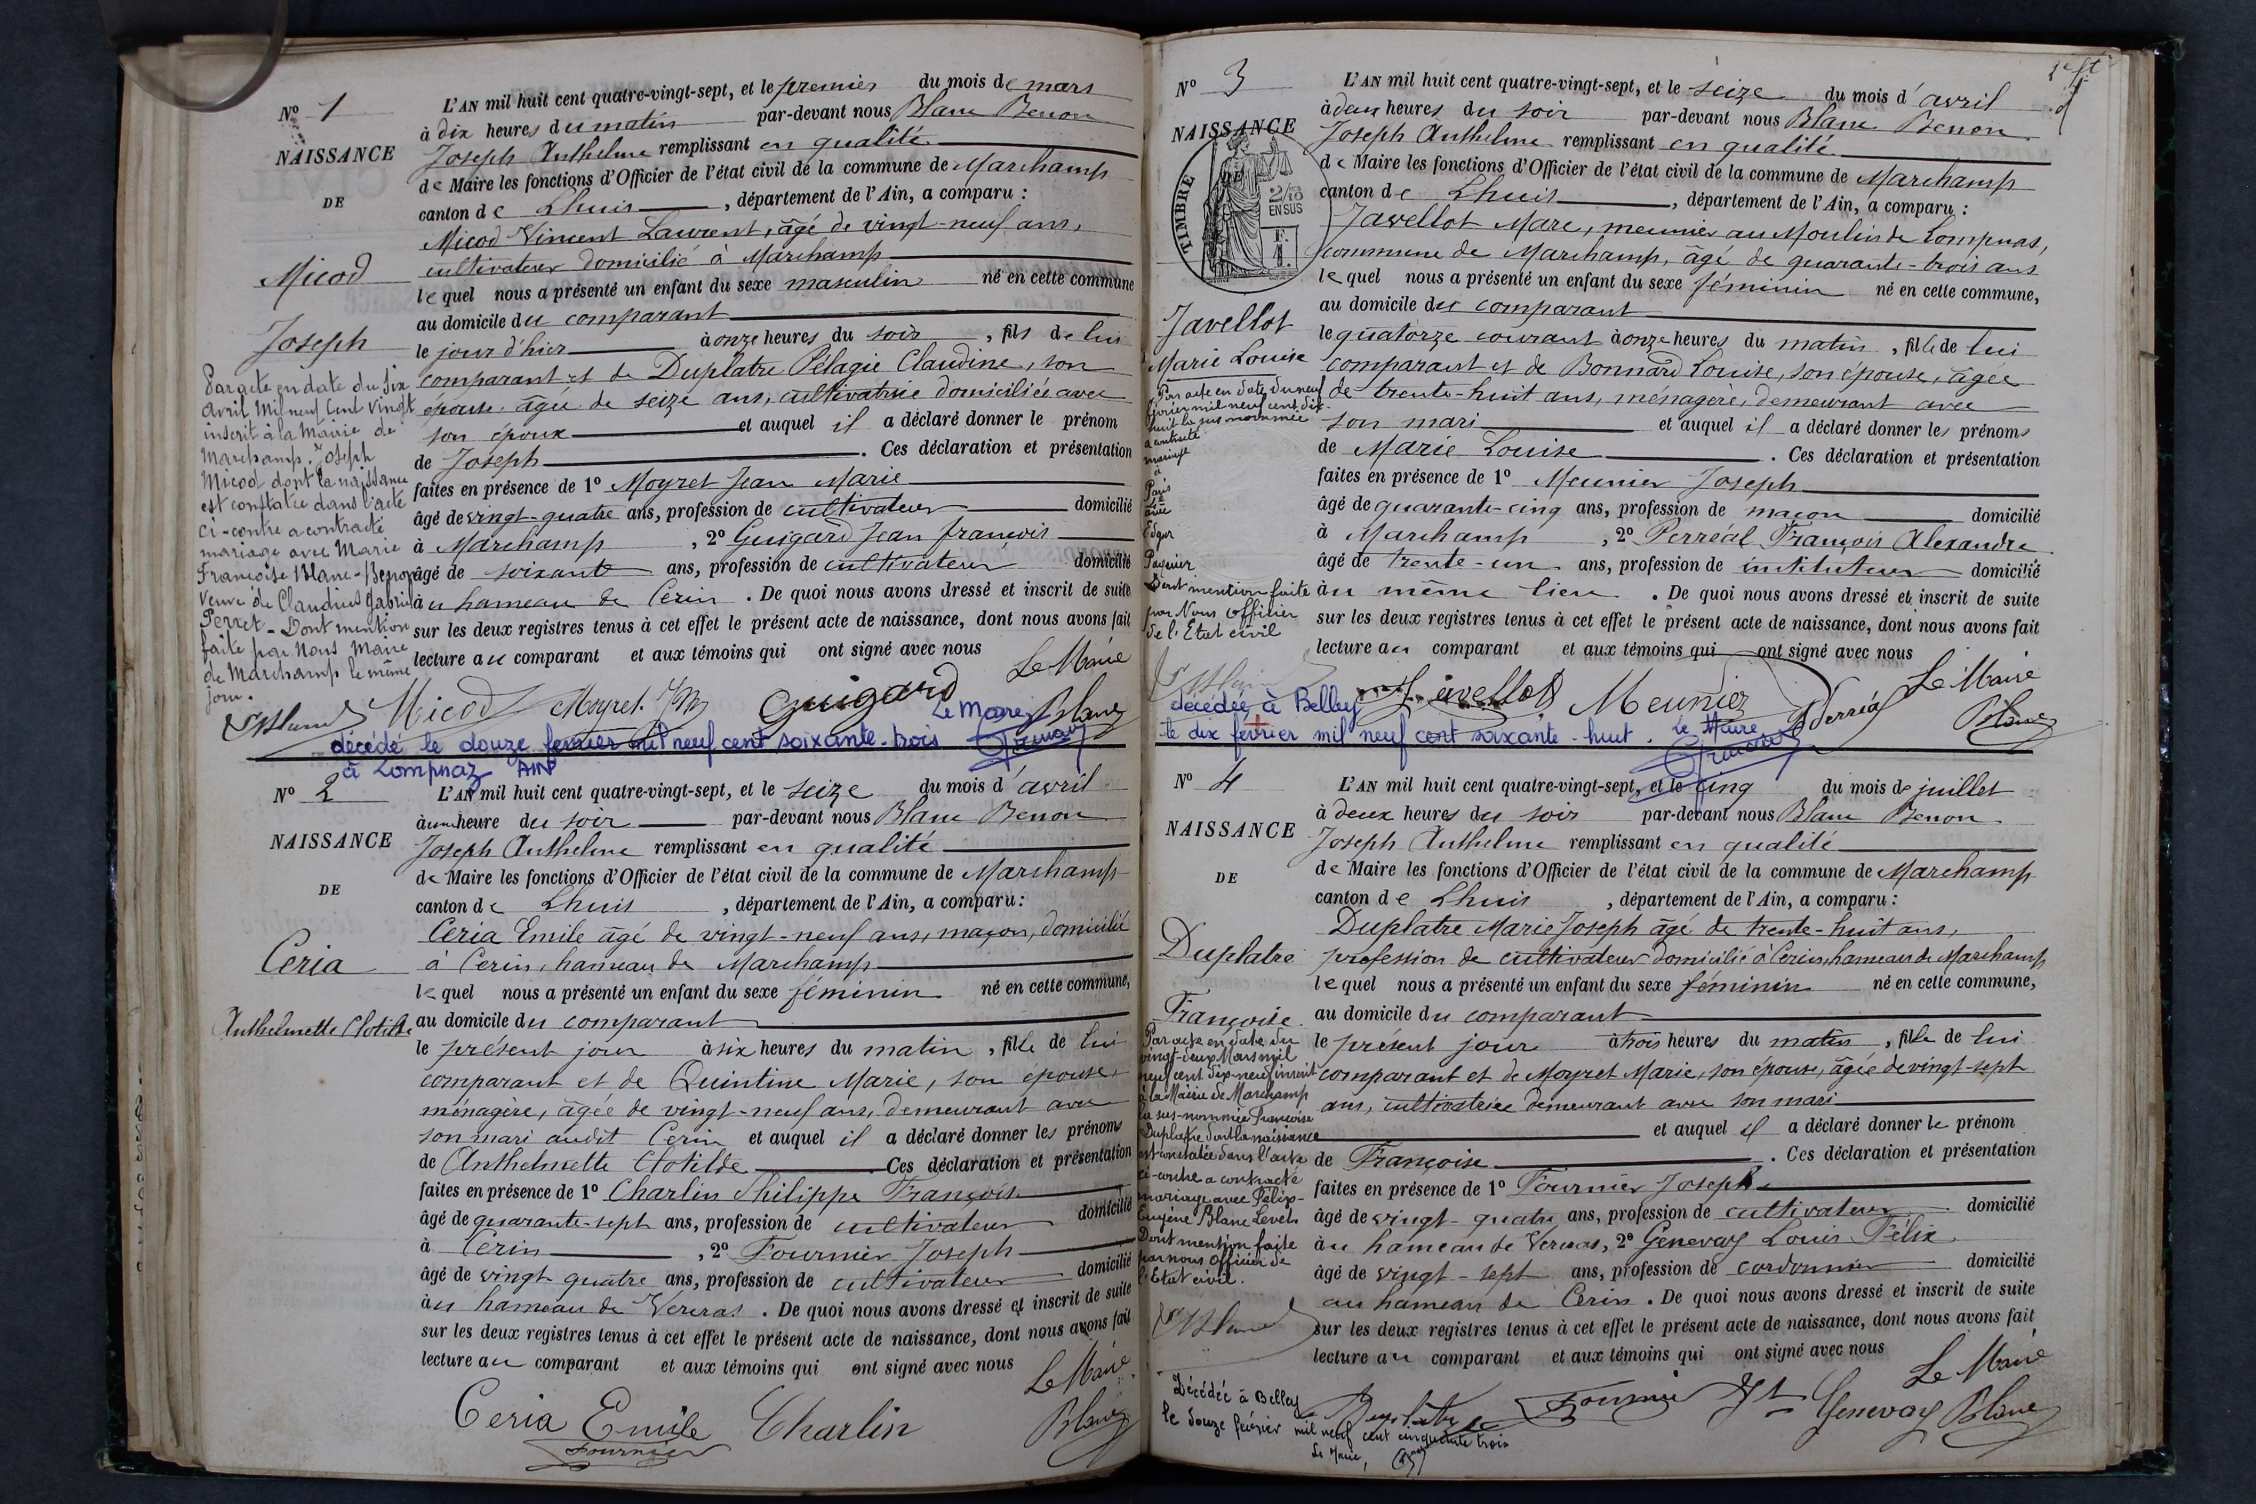 Nº 1
NAISSANCE
DE
Micod
Joseph
Par acte en date du six
avril mil neuf cent vingt
inscrit à la Mairie de
Marchamp. Joseph
Micod dont la naissance
est constatée dans l'acte
ci-contre a contracté
mariage avec Marie
Françoise Blanc-Benon
veuve de Claudius Gabriel
Perret - Dont mention
faite par Nous Maire
de Marchamp le même
jour.
L'AN mil huit cent quatre-vingt-sept, et le premier du mois de mars
à dix heures du matin par-devant nous Blanc Benon
Joseph Anthelme remplissant en qualité
de Maire les fonctions d'Officier de l'état civil de la commune de Marchamp
canton de Lhuis, département de l'Ain, a comparu :
Micod Vincent Laurent, âgé de vingt-neuf ans,
cultivateur domicilié à Marchamp
lequel nous a présenté un enfant du sexe masculin né en cette commune
au domicile du comparant
le jour d'hier à onze heures du soir, fils de lui
comparant et de Duplatre Pélagie Claudine, son
épouse âgée de seize ans, cultivatrice domiciliée avec
son époux et auquel il a déclaré donner le prénom
de Joseph. Ces déclaration et présentation
faites en présence de 1º Moyret Jean Marie
âgé de vingt-quatre ans, profession de cultivateur domicilié
à Marchamp, 2º Guigard Jean françois
âgé de soixante ans, profession de cultivateur domicilié
au hameau de Cerin. De quoi nous avons dressé et inscrit de suite
sur les deux registres tenus à cet effet le présent acte de naissance, dont nous avons fait
lecture au comparant et aux témoins qui ont signé avec nous
Le Maire
Micod Moyret J M Guigard Blanc
Le Maire
décédé le douze fevrier mil neuf cent soixante-trois
à Lompnaz AIN
Nº 2
NAISSANCE
DE
Ceria
Anthelmette Clotilde
L'AN mil huit cent quatre-vingt-sept, et le seize du mois d'avril
à une heure du soir par-devant nous Blanc Benon
Joseph Anthelme remplissant en qualité
de Maire les fonctions d'Officier de l'état civil de la commune de Marchamp
canton de Lhuis, département de l'Ain, a comparu :
Ceria Emile âgé de vingt-neuf ans, maçon, domicilié
à Cerin, hameau de Marchamp
lequel nous a présenté un enfant du sexe féminin né en cette commune,
au domicile du comparant
le présent jour à six heures du matin, fille de lui
comparant et de Quintine Marie, son épouse,
ménagère, âgée de vingt-neuf ans, demeurant avec
son mari audit Cerin et auquel il a déclaré donner les prénoms
de Anthelmette Clotilde. Ces déclaration et présentation
faites en présence de 1º Charlin Philippe François
âgé de quarante-sept ans, profession de cultivateur domicilié
à Cerin, 2º Fournier Joseph
âgé de vingt quatre ans, profession de cultivateur domicilié
au hameau de Vercras. De quoi nous avons dressé et inscrit de suite
sur les deux registres tenus à cet effet le présent acte de naissance, dont nous avons fait
lecture au comparant et aux témoins qui ont signé avec nous
Le Maire
Ceria Emile Charlin Blanc
Fournier
Nº 3
NAISSANCE
DE
TIMBRE
2/10
EN SUS
Javellot
Marie Louise
Par acte en date du neuf
février mil neuf cent dix-
huit la sus nommée
a contracté
mariage
à
Paris
avec
Edgar
Dont mention faite
par Nous Officier
de l'Etat civil
L'AN mil huit cent quatre-vingt-sept, et le seize du mois d'avril
à deux heures du soir par-devant nous Blanc Benon
Joseph Anthelme remplissant en qualité
de Maire les fonctions d'Officier de l'état civil de la commune de Marchamp
canton de Lhuis, département de l'Ain, a comparu :
Javellot Marc, meunier au Moulin de Lompnas,
commune de Marchamp, âgé de quarante-trois ans
lequel nous a présenté un enfant du sexe féminin né en cette commune,
au domicile du comparant
le quatorze courant à onze heures du matin, fille de lui
comparant et de Bonnard Louise, son épouse, âgée
de trente-huit ans, ménagère, demeurant avec
son mari et auquel il a déclaré donner les prénoms
de Marie Louise. Ces déclaration et présentation
faites en présence de 1º Meunier Joseph
âgé de quarante-cinq ans, profession de maçon domicilié
à Marchamp, 2º Perréal François Alexandre
âgé de trente-un ans, profession de instituteur domicilié
au même lieu. De quoi nous avons dressé et inscrit de suite
sur les deux registres tenus à cet effet le présent acte de naissance, dont nous avons fait
lecture au comparant et aux témoins qui ont signé avec nous
Le Maire
Javellot Meunier Perréal Blanc
décédée à Belley
le dix février mil neuf cent soixante-huit. Le Maire
Nº 4
NAISSANCE
DE
Duplatre
Françoise
Par acte en date du
vingt-deux Mars mil
neuf cent dix-neuf inscrit
à la Mairie de Marchamp
la sus-nommée Françoise
Duplatre dont la naissance
est constatée dans l'acte
ci-contre a contracté
mariage avec Félix-
Eugène Blanc Levet.
Dont mention faite
par nous Officier de
l'Etat civil.
L'AN mil huit cent quatre-vingt-sept, et le cinq du mois de juillet
à deux heures du soir par-devant nous Blanc Benon
Joseph Anthelme remplissant en qualité
de Maire les fonctions d'Officier de l'état civil de la commune de Marchamp
canton de Lhuis, département de l'Ain, a comparu :
Duplatre Marie Joseph âgé de trente-huit ans,
profession de cultivateur domicilié à Cerin, hameau de Marchamp
lequel nous a présenté un enfant du sexe féminin né en cette commune,
au domicile du comparant
le présent jour à trois heures du matin, fille de lui
comparant et de Moyret Marie, son épouse, âgée de vingt-sept
ans, cultivatrice demeurant avec son mari
et auquel il a déclaré donner le prénom
de Françoise. Ces déclaration et présentation
faites en présence de 1º Fournier Joseph
âgé de vingt-quatre ans, profession de cultivateur domicilié
au hameau de Vercras, 2º Genevay Louis Félix
âgé de vingt-sept ans, profession de cordonnier domicilié
au hameau de Cerin. De quoi nous avons dressé et inscrit de suite
sur les deux registres tenus à cet effet le présent acte de naissance, dont nous avons fait
lecture au comparant et aux témoins qui ont signé avec nous
Le Maire
Duplatre Fournier Genevay Blanc
Décédée à Belley
le douze février mil neuf cent cinquante trois
Le Maire,